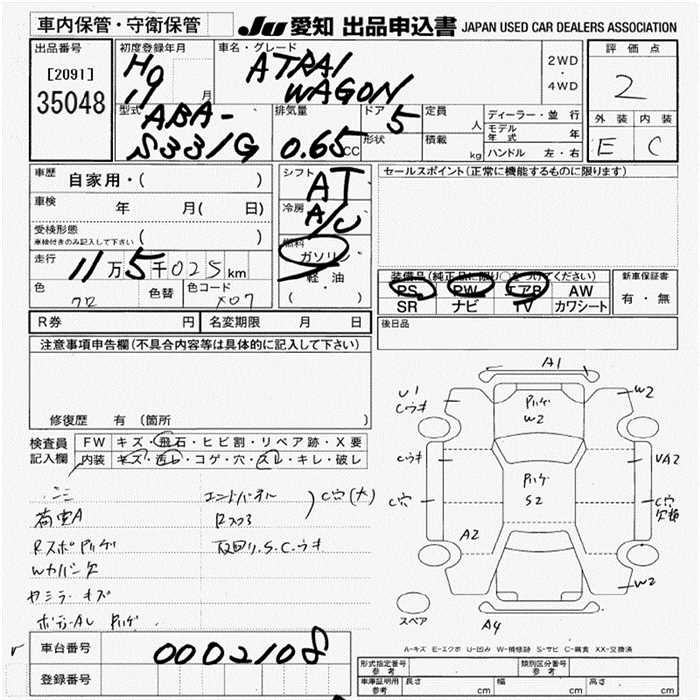 車内保管・守衛保管
JU 愛知 出品申込書 JAPAN USED CAR DEALERS ASSOCIATION
出品番号
[2091]
35048
初度登録年月
H0
17 月
車名・グレード
ATRAI
WAGON
2WD
・
4WD
評価点
2
外装 内装
E C
型式
ABA-
S331G
排気量
0.65 CC
ドア
5
形状
定員
人
積載
kg
ディーラー・並行
モデル年式 年
ハンドル 左・右
車歴
自家用・( )
車検
年 月( 日)
受検形態
車検付きのみ記入して下さい ( )
走行
11万5千025km
色
クロ
色替
色コード
X07
シフト
AT
冷房
A/C
燃料
ガソリン
軽・油
( )
セールスポイント(正常に機能するものに限ります)
装備品(純正品に限り○をつけてください)
PS PW エアB AW
SR ナビ TV カワシート
新車保証書
有・無
後日品
R券 円
名変期限 月 日
注意事項申告欄(不具合内容等は具体的に記入して下さい)
修復歴 有(箇所 )
検査員
記入欄
FW キズ・飛石・ヒビ割・リペア跡・X要
内装 キズ・汚レ・コゲ・穴・スレ・キレ・破レ
A1
U1
Cウキ
W2
ハゲ
W2
Cウキ
UA2
ハゲ
S2
C穴
C穴
A2
W2
スペア
A4
エンドパネル
C穴(大)
ミラー キズ
A-キズ E-エクボ U-凹み W-補修跡 S-サビ C-腐食 XX-交換済
車台番号
0002108
登録番号
形式指定番号
参考
類別区分番号
参考
車庫証明用
参考
長さ cm 幅 cm 高さ cm